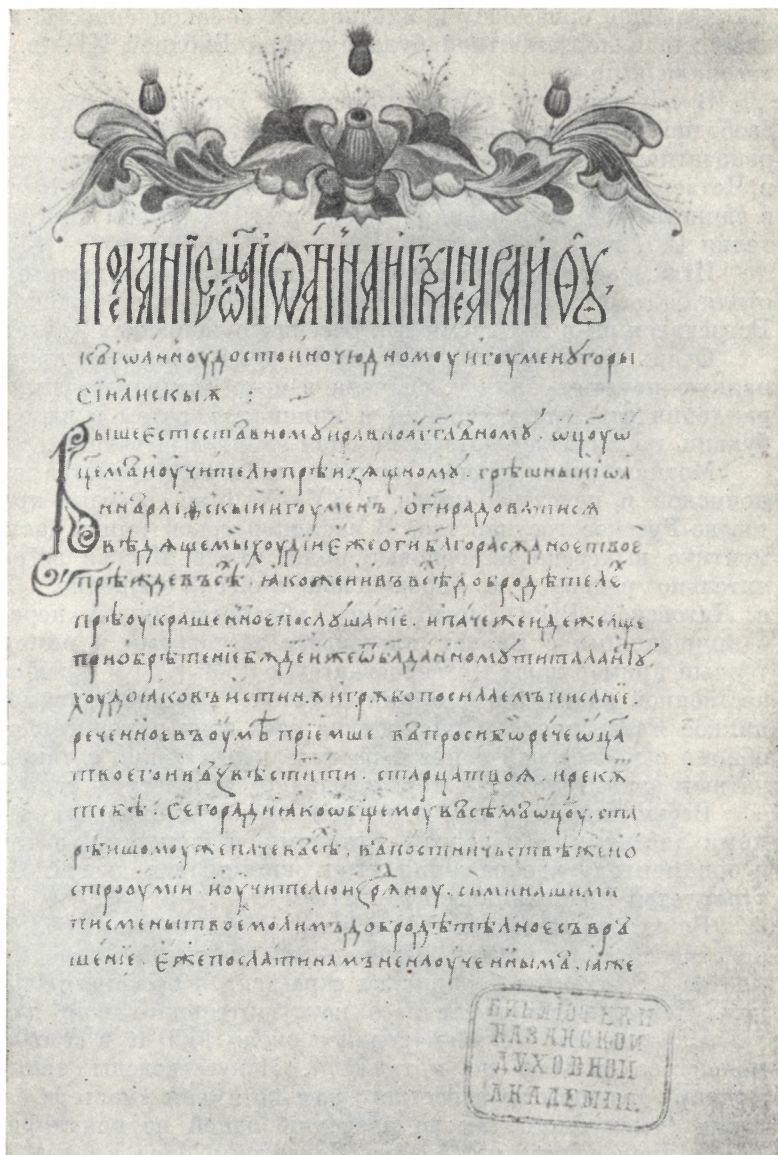 Посланїе ст҃го їѡан̾на игѹмена раиѳу,
къ іѡанноу достоиночюдномоу игоуменꙋ горы
сїнаискыѧ :
Вышеестествъномꙋ и равноагг҃льномꙋ . ѡц҃оу ѡ
ц҃емъ и оучителю прѣизѧщномꙋ . грѣшныи іѡа
ннъ раиѳскыи игоуменъ . о г҃и радоватисѧ
вѣдѧще мы хоудїи еже о г҃и бл҃горасѫдное твое
прѣжде въсѣͯ . ꙗко же и въ въсѣ добродѣтелеͯ
прѣоукрашенное послꙋшанїе . и паче же идеже аще
приобрѣтенїе бѫде͏т иже ѿ б҃а данномꙋ ти талантꙋ
хоудо ꙗко въистинѫ и грѫбо посылаемъ писанїе .
реченное въ оумѣ прїемше . въпроси бѡ рече ѡц҃а
твоего и възвѣстит ти . старцѧ твоѧ . и рекѫт
тебѣ . Сего ради ꙗко ѡбщемоу въсѣмъ ѡц҃оу . ста
рѣишомоу же паче въсѣͯ . въ постничьствѣ же и о
строоумїи и оучителю изрѧдноу . сими нашими
писмены твое молимъ добродѣтѣлное съвръ
шенїе . Еже послати намъ ненаоученнымъ , ꙗже
БИБЛІОТЕКИ
КАЗАНСКОЙ
ДУХОВНОЙ
АКАДЕМІИ.